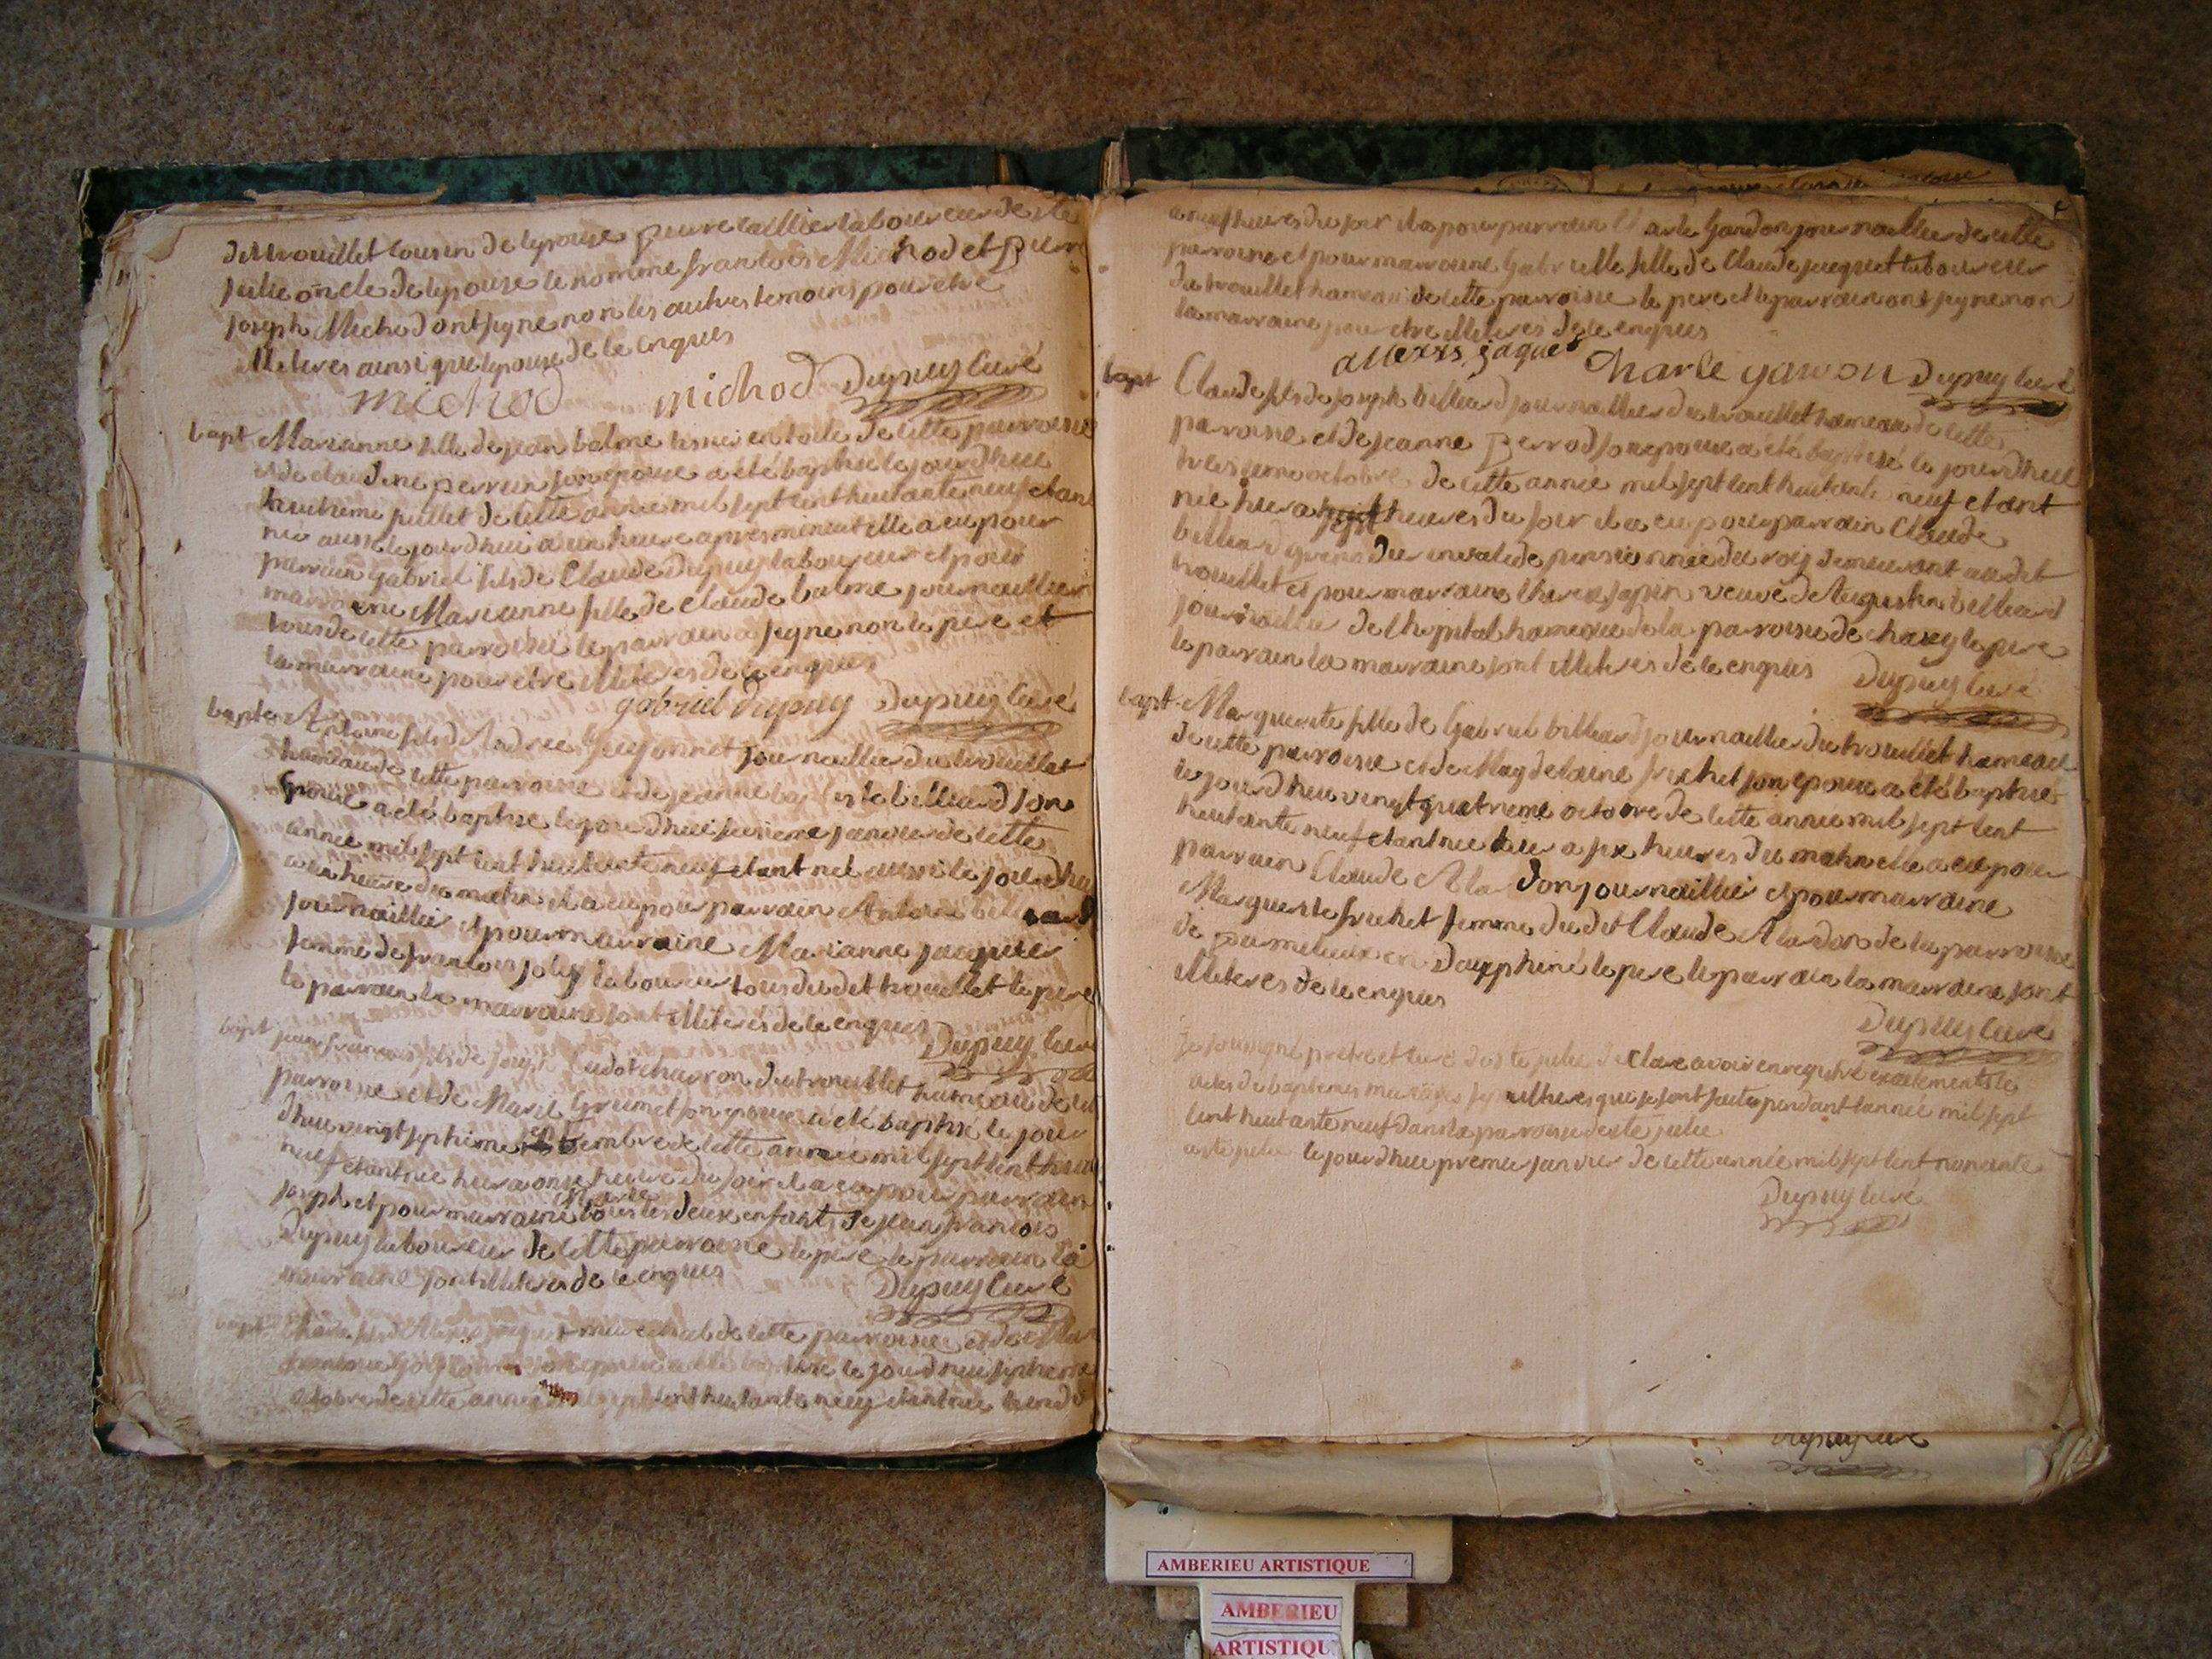 du trouillet cousin de lepouse pierre caillier laboureur de ste
julie oncle de lepouse le nommé francois Michod et pierre
joseph Michod ont signe non les autres temoins pour etre
illiteres ainsi que lepouse de ce enquis
michod michod Dupuy curé
bapt Marianne fille de jean balme tissier en toile de cette parroisse
et de claudine perrin son epouse a été baptisé le jourdhui
huitieme juillet de cette année mil sept cent huitante neuf etant
née aussi le jourdhui a un heure apres minuit elle a eu pour
parrain gabriel fils de Claude Dupuy laboureur et pour
marraine Marianne fille de claude balme journaillier
tous de cette parroisse le parrain a signe non le pere et
la marraine pour etre illiteres de ce enquis
gabriel dupuy Dupuy curé
bapte Antoine fils de Andrée juejonnet journaillier du trouillet
hameau de cette parroisse et de jeanne baptiste billiard son
epouse a été baptisé le jourdhui janvier de cette
année mil sept cent huitante neuf etant né aussi le jourdhui
a un heure du matin il a eu pour parrain Antoine billiard
journaillier et pour marraine Marianne jacquier
femme de francois joly laboureur tous du dit trouillet le pere
le parrain la marraine sont illiterés de ce enquis
Dupuy curé
bapt jean francois fils de joseph Cudot charron du trouillet hameau de cette
parroisse et de Marie Grumet son epouse a été baptisé le jour
dhui vingt septieme de cette année mil sept cent huitante
neuf etant né hier a onse heure du soir il a eu pour parrain
joseph et pour marraine Marie tous les deux enfants de jean francois
Dupuy laboureur de cette parroisse le pere le parrain la
marraine sont illiteres de ce enquis
Dupuy curé
bapt Charle fils de Alexis jaquet marechal de cette parroisse et de
le jourdhui septieme
octobre de cette année mil sept cent huitante neuf etant née
a neuf heures du soir il a pour parrain Charle Gandon journaillier de cette
parroisse et pour marraine Gabrielle fille de Claude jacquet laboureur
du trouillet hameau de cette parroisse le pere et le parrain ont signe non
la marraine pour etre illiteres de ce enquis
allexis jaquet Charle gawon Dupuy curé
bapt Claude fils de joseph billiard journaillier du trouillet hameau de cette
parroisse et de jeanne Perrod son epouse a été baptisé le jourdhui
treisieme octobre de cette année mil sept cent huitante neuf etant
née hier a sept heures du soir il a eu pour parrain Claude
billiard invalide pensionnée du roy demeurant au dit
trouillet et pour marraine therese sapin veuve de Augustin billiard
journaillier de lhopital hameau de la parroisse de chasey le pere
le parrain la marraine sont illiteres de ce enquis Dupuy curé
bapt Marguerite fille de Gabriel billiard journaillier du trouillet hameau
de cette parroisse et de Magdelaine frichet son epouse a été baptisé
le jourdhui vingt quatrieme octobre de cette année mil sept cent
huitante neuf etant née hier a six heures du matin elle a eu pour
parrain Claude Aladon journaillier et pour marraine
Marguerite frichet femme du dit Claude Aladon de la parroisse
de en Dauphiné le pere le parrain la marraine sont
illiteres de ce enquis
Dupuy curé
Je soussigné pretre et curé de ste julie declare avoir enregistré exactement le
actes de baptemes mariages sepultures qui se sont faits pendant lannée mil sept
cent huitante neuf dans la parroisse de ste julie
a ste julie le jourdhui premier janvier de cette année mil sept cent nonante
Dupuy curé
Dupuy curé
AMBERIEU ARTISTIQUE
AMBERIEU
ARTISTIQU